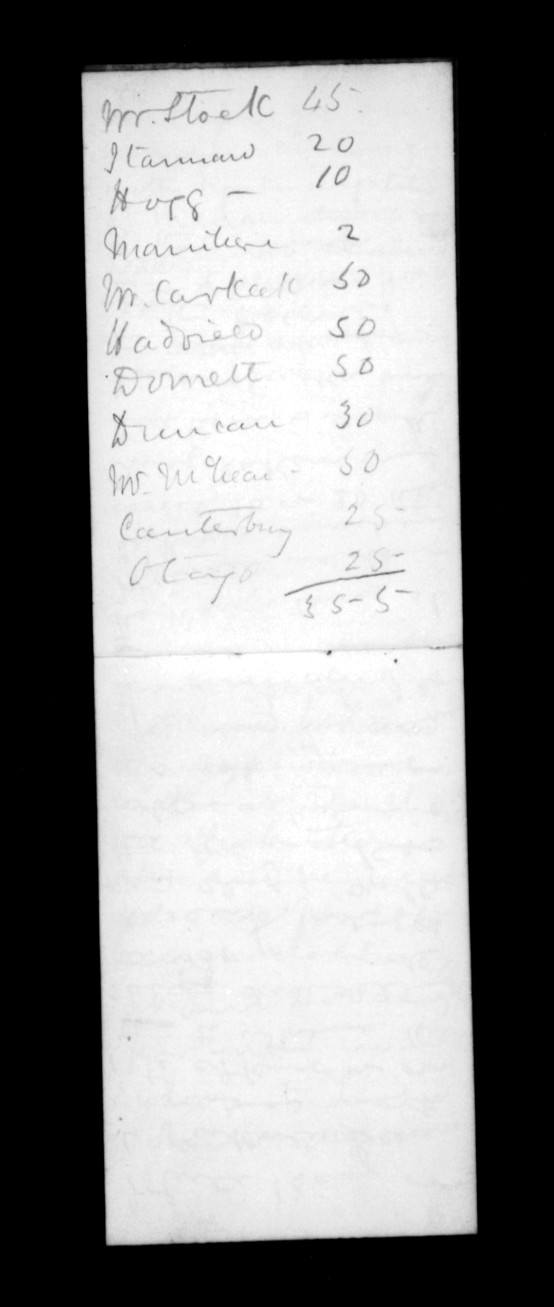 Mr. Stock 45
Stannard 20
Hogg - 10
Manihera 2
Mr. Carkeek 50
Hadfield 50
Domett 50
Duncan 30
Mr. McLean - 50
Canterbury 25
Otago 25
355